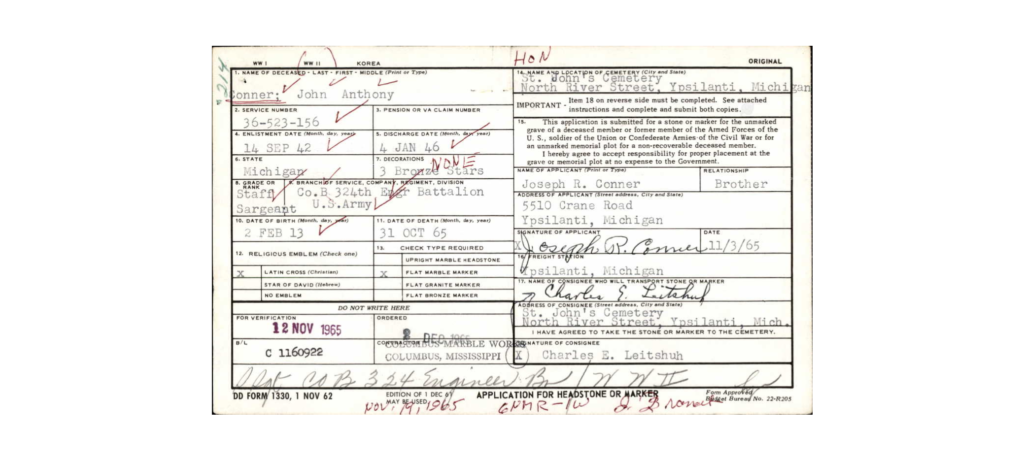 WW I WW II KOREA HON ORIGINAL
214
1. NAME OF DECEASED - LAST - FIRST - MIDDLE (Print or Type)
Conner; John Anthony
2. SERVICE NUMBER
36-523-156
3. PENSION OR VA CLAIM NUMBER
4. ENLISTMENT DATE (Month, day, year)
14 SEP 42
5. DISCHARGE DATE (Month, day, year)
4 JAN 46
6. STATE
Michigan
7. DECORATIONS
NONE
3 Bronze Stars
8. GRADE OR RANK
Staff
Sargeant
9. BRANCH OF SERVICE, COMPANY, REGIMENT, DIVISION
Co.B 324th Engr Battalion
U.S.Army
10. DATE OF BIRTH (Month, day, year)
2 FEB 13
11. DATE OF DEATH (Month, day, year)
31 OCT 65
12. RELIGIOUS EMBLEM (Check one)
X LATIN CROSS (Christian)
STAR OF DAVID (Hebrew)
NO EMBLEM
13. CHECK TYPE REQUIRED
UPRIGHT MARBLE HEADSTONE
X FLAT MARBLE MARKER
FLAT GRANITE MARKER
FLAT BRONZE MARKER
14. NAME AND LOCATION OF CEMETERY (City and State)
St. John's Cemetery
North River Street, Ypsilanti, Michigan
IMPORTANT - Item 18 on reverse side must be completed. See attached
instructions and complete and submit both copies.
15. This application is submitted for a stone or marker for the unmarked
grave of a deceased member or former member of the Armed Forces of the
U. S., soldier of the Union or Confederate Armies of the Civil War or for
an unmarked memorial plot for a non-recoverable deceased member.
I hereby agree to accept responsibility for proper placement at the
grave or memorial plot at no expense to the Government.
NAME OF APPLICANT (Print or Type)
Joseph R. Conner
RELATIONSHIP
Brother
ADDRESS OF APPLICANT (Street address, City and State)
5510 Crane Road
Ypsilanti, Michigan
SIGNATURE OF APPLICANT
X Joseph R. Conner
DATE
11/3/65
16. FREIGHT STATION
Ypsilanti, Michigan
17. NAME OF CONSIGNEE WHO WILL TRANSPORT STONE OR MARKER
Charles E. Leitshuh
ADDRESS OF CONSIGNEE (Street address, City and State)
St. John's Cemetery
North River Street, Ypsilanti, Mich.
I HAVE AGREED TO TAKE THE STONE OR MARKER TO THE CEMETERY.
SIGNATURE OF CONSIGNEE
(X) Charles E. Leitshuh
DO NOT WRITE HERE
FOR VERIFICATION
12 NOV 1965
ORDERED
2 DEC 1965
B/L
C 1160922
CONTRACTOR
COLUMBUS MARBLE WORKS
COLUMBUS, MISSISSIPPI
CO B 324 Engineer Bn / W W II
DD FORM 1330, 1 NOV 62
EDITION OF 1 DEC 61
MAY BE USED.
APPLICATION FOR HEADSTONE OR MARKER
Form Approved
Budget Bureau No. 22-R205
NOV. 19, 1965